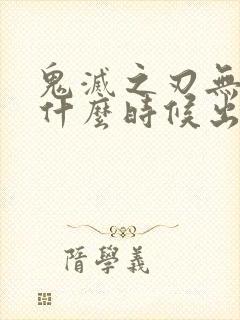 鬼滅之刃無
什麼時候出
隋學義